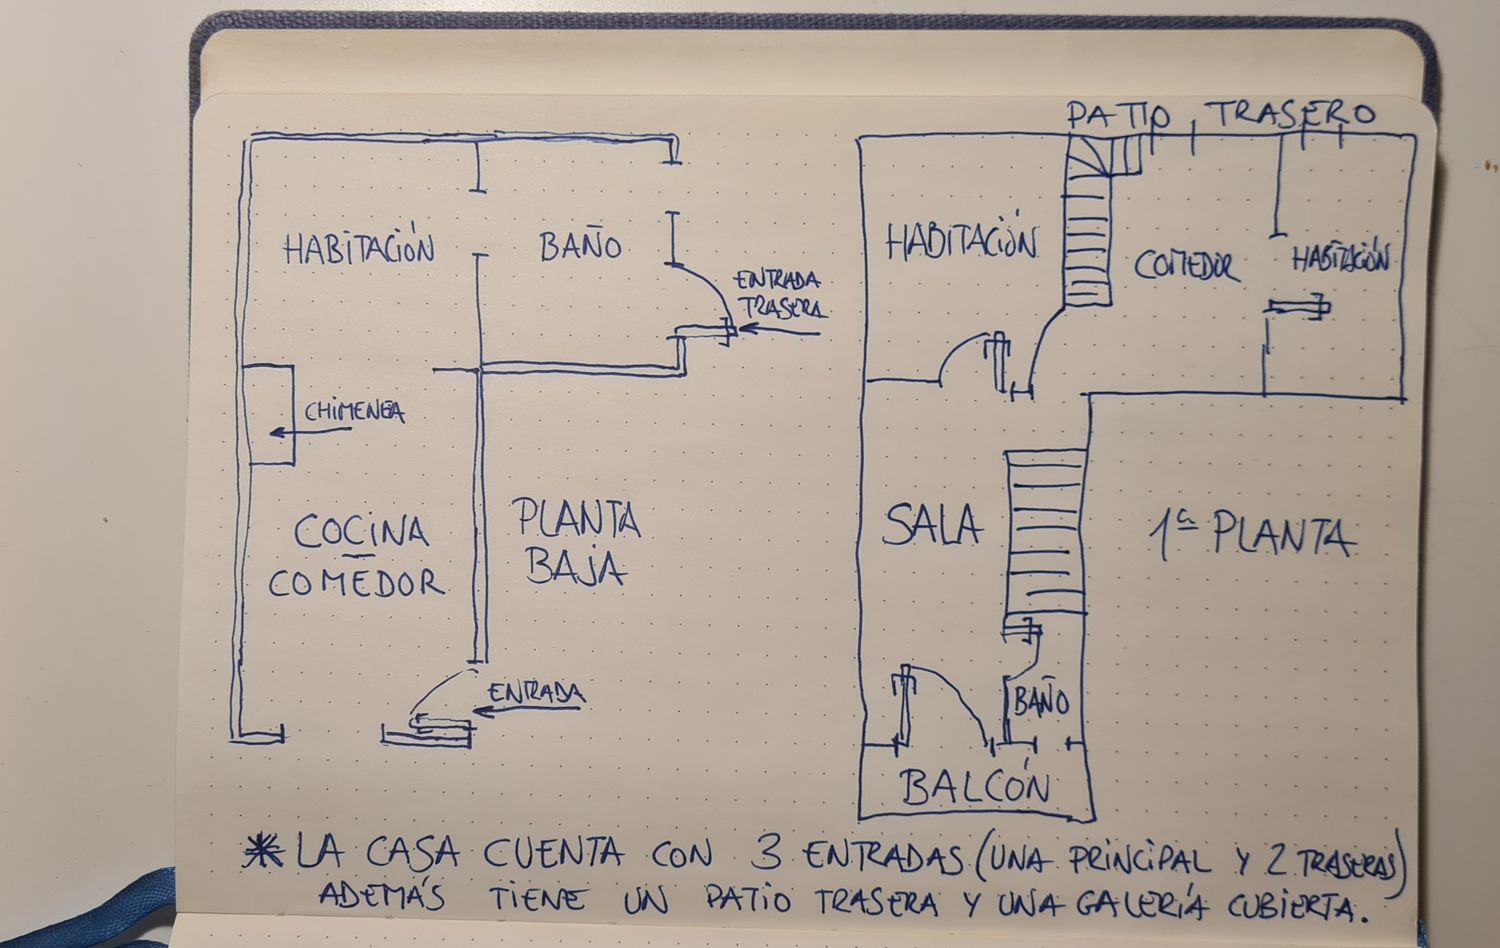 HABITACIÓN
BAÑO
ENTRADA
TRASERA
CHIMENEA
COCINA
COMEDOR
PLANTA
BAJA
ENTRADA
PATIO TRASERO
HABITACIÓN
COMEDOR
HABITACIÓN
SALA
1ª PLANTA
BAÑO
BALCÓN
* LA CASA CUENTA CON 3 ENTRADAS (UNA PRINCIPAL Y 2 TRASERAS)
ADEMÁS TIENE UN PATIO TRASERA Y UNA GALERÍA CUBIERTA.